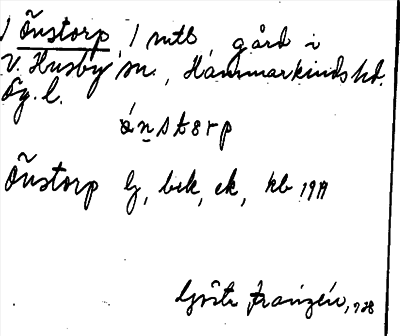 Önstorp 1 mtl gård i
V. Husby sn., Hammarkinds hd.
Ög. l.
ȯnstørp
Önstorp G, bik, ek, kb 1911
Gösta Franzén, 1928